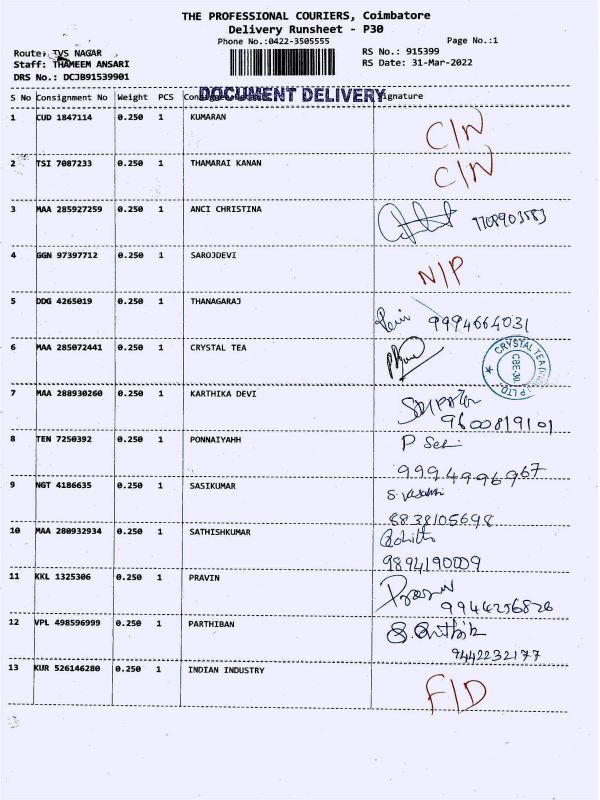 THE PROFESSIONAL COURIERS, Coimbatore
Delivery Runsheet - P30
Phone No.:0422-3505555
Page No.:1
Route: TVS NAGAR
RS No.: 915399
Staff: THAMEEM ANSARI
RS Date: 31-Mar-2022
DRS No.: DCJB91539901
DOCUMENT DELIVERY
S No Consignment No Weight PCS Signature
1 CUD 1847114 0.250 1 KUMARAN C/N
2 TSI 7087233 0.250 1 THAMARAI KANAN C/N
3 MAA 285927259 0.250 1 ANCI CHRISTINA
4 GGN 97397712 0.250 1 SAROJDEVI N/P
5 DDG 4265019 0.250 1 THANAGARAJ 9994664031
6 MAA 285072441 0.250 1 CRYSTAL TEA
CRYSTAL TEA P LTD.
7 MAA 288930260 0.250 1 KARTHIKA DEVI
9600819101
8 TEN 7250392 0.250 1 PONNAIYAHH
9994996967
9 NGT 4186635 0.250 1 SASIKUMAR
8838105698
10 MAA 280932934 0.250 1 SATHISHKUMAR
9894190009
11 KKL 1325306 0.250 1 PRAVIN
9944256826
12 VPL 498596999 0.250 1 PARTHIBAN
9442232177
13 KUR 526146280 0.250 1 INDIAN INDUSTRY F/D